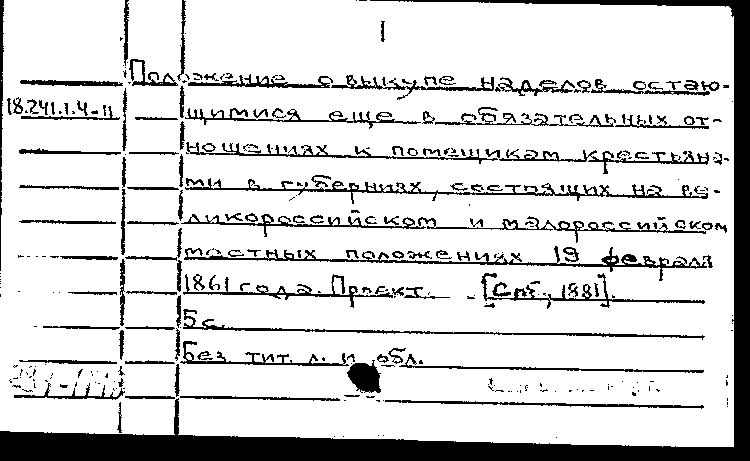 1
Положение о выкупе наделов остаю-
18.241.1.4-11 щимися еще в обязательных от-
ношениях к помещикам крестьяна-
ми в губерниях, состоящих на ве-
ликороссийском и малороссийском
местных положениях 19 февраля
1861 года. Проект. - [Спб., 1881].
5 с.
Без тит. л. и обл.